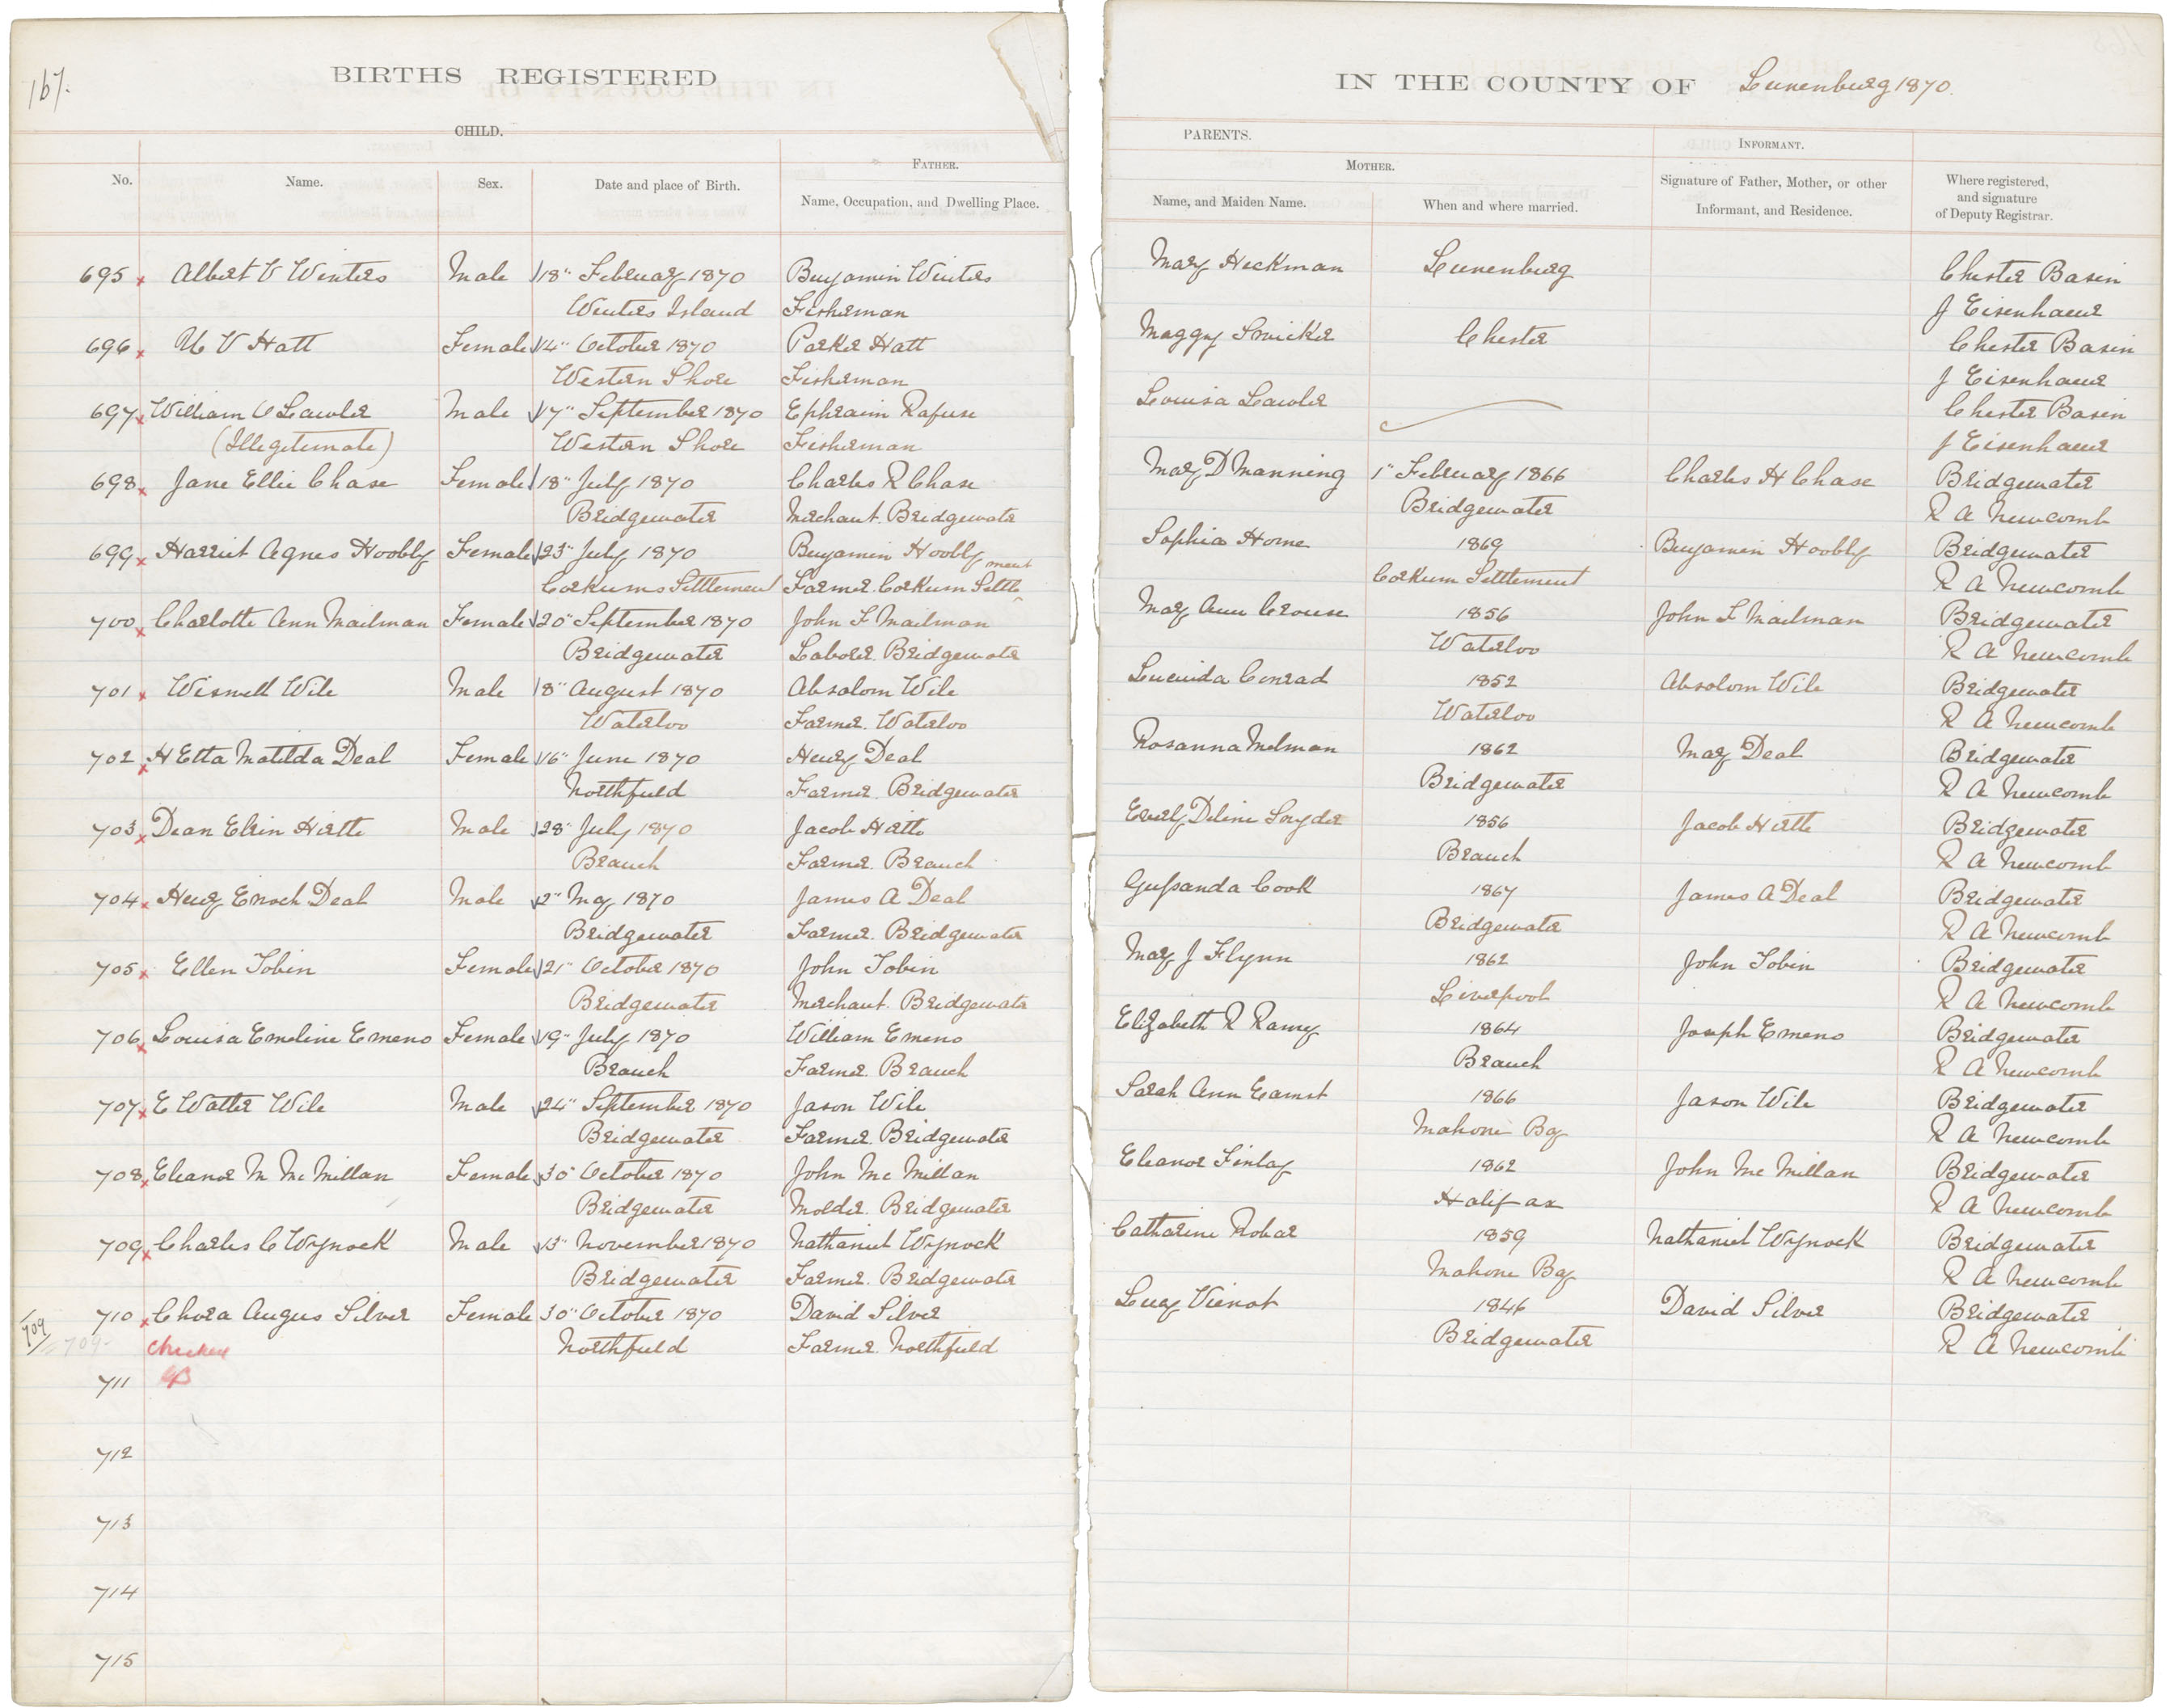 167.
BIRTHS REGISTERED
IN THE COUNTY OF Lunenburg 1870.
CHILD.
PARENTS.
FATHER.
MOTHER.
INFORMANT.
No.
Name.
Sex.
Date and place of Birth.
Name, Occupation, and Dwelling Place.
Name, and Maiden Name.
When and where married.
Signature of Father, Mother, or other
Informant, and Residence.
Where registered,
and signature
of Deputy Registrar.
695 x Albert V Winters Male 18" February 1870 Benjamin Winters Mary Heckman Lunenburg Chester Basin
Winters Island Fisherman J Eisenhaur
696 x U V Hatt Female 14" October 1870 Parker Hatt Maggy Smicker Chester Chester Basin
Western Shore Fisherman J Eisenhaur
697 x William O Lawler Male 17" September 1870 Ephraim Rafuse Louisa Lawler Chester Basin
(Illegitemate) Western Shore Fisherman J Eisenhaur
698 x Jane Ellie Chase Female 18" July 1870 Charles R Chase Mary D Manning 1" February 1866 Charles H Chase Bridgewater
Bridgewater Merchant. Bridgewater Bridgewater R A Newcomb
699 x Harriet Agnes Hoobly Female 23" July 1870 Benjamin Hoobly Sophia Horne 1869 Benjamin Hoobly Bridgewater
Corkums Settlement Farmer. Corkum Settlement Corkum Settlement R A Newcomb
700 x Charlotte Ann Mailman Female 20" September 1870 John F Mailman Mary Ann Crouse 1856 John F Mailman Bridgewater
Bridgewater Laborer. Bridgewater Waterloo R A Newcomb
701 x Wisnell Wile Male 18" August 1870 Absolom Wile Lucinda Conrad 1852 Absolom Wile Bridgewater
Waterloo Farmer. Waterloo Waterloo R A Newcomb
702 x H Etta Matilda Deal Female 16" June 1870 Henry Deal Rosanna Melman 1862 Mary Deal Bridgewater
Northfield Farmer. Bridgewater Bridgewater R A Newcomb
703 x Dean Elrin Hirtle Male 28" July 1870 Jacob Hirtle Everly Deline Snyder 1856 Jacob Hirtle Bridgewater
Branch Farmer. Branch Branch R A Newcomb
704 x Henry Enoch Deal Male 2" May 1870 James A Deal Gussanda Cook 1867 James A Deal Bridgewater
Bridgewater Farmer. Bridgewater Bridgewater R A Newcomb
705 x Ellen Tobin Female 21" October 1870 John Tobin Mary J Flynn 1862 John Tobin Bridgewater
Bridgewater Merchant. Bridgewater Liverpool R A Newcomb
706 x Louisa Emeline Emeno Female 19" July 1870 William Emeno Elizabeth R Ramey 1864 Joseph Emeno Bridgewater
Branch Farmer. Branch Branch R A Newcomb
707 x E Walter Wile Male 24" September 1870 Jason Wile Sarah Ann Earnst 1866 Jason Wile Bridgewater
Bridgewater Farmer. Bridgewater Mahone Bay R A Newcomb
708 x Eleanor M McMillan Female 30" October 1870 John McMillan Eleanor Finlay 1862 John McMillan Bridgewater
Bridgewater Molder. Bridgewater Halifax R A Newcomb
709 x Charles C Wynock Male 13" November 1870 Nathaniel Wynock Catharine Robar 1859 Nathaniel Wynock Bridgewater
Bridgewater Farmer. Bridgewater Mahone Bay R A Newcomb
710 x Chora Augus Silver Female 30" October 1870 David Silver Lucy Vienot 1846 David Silver Bridgewater
709 709. Checked Northfield Farmer. Northfield Bridgewater R A Newcomb
711
712
713
714
715